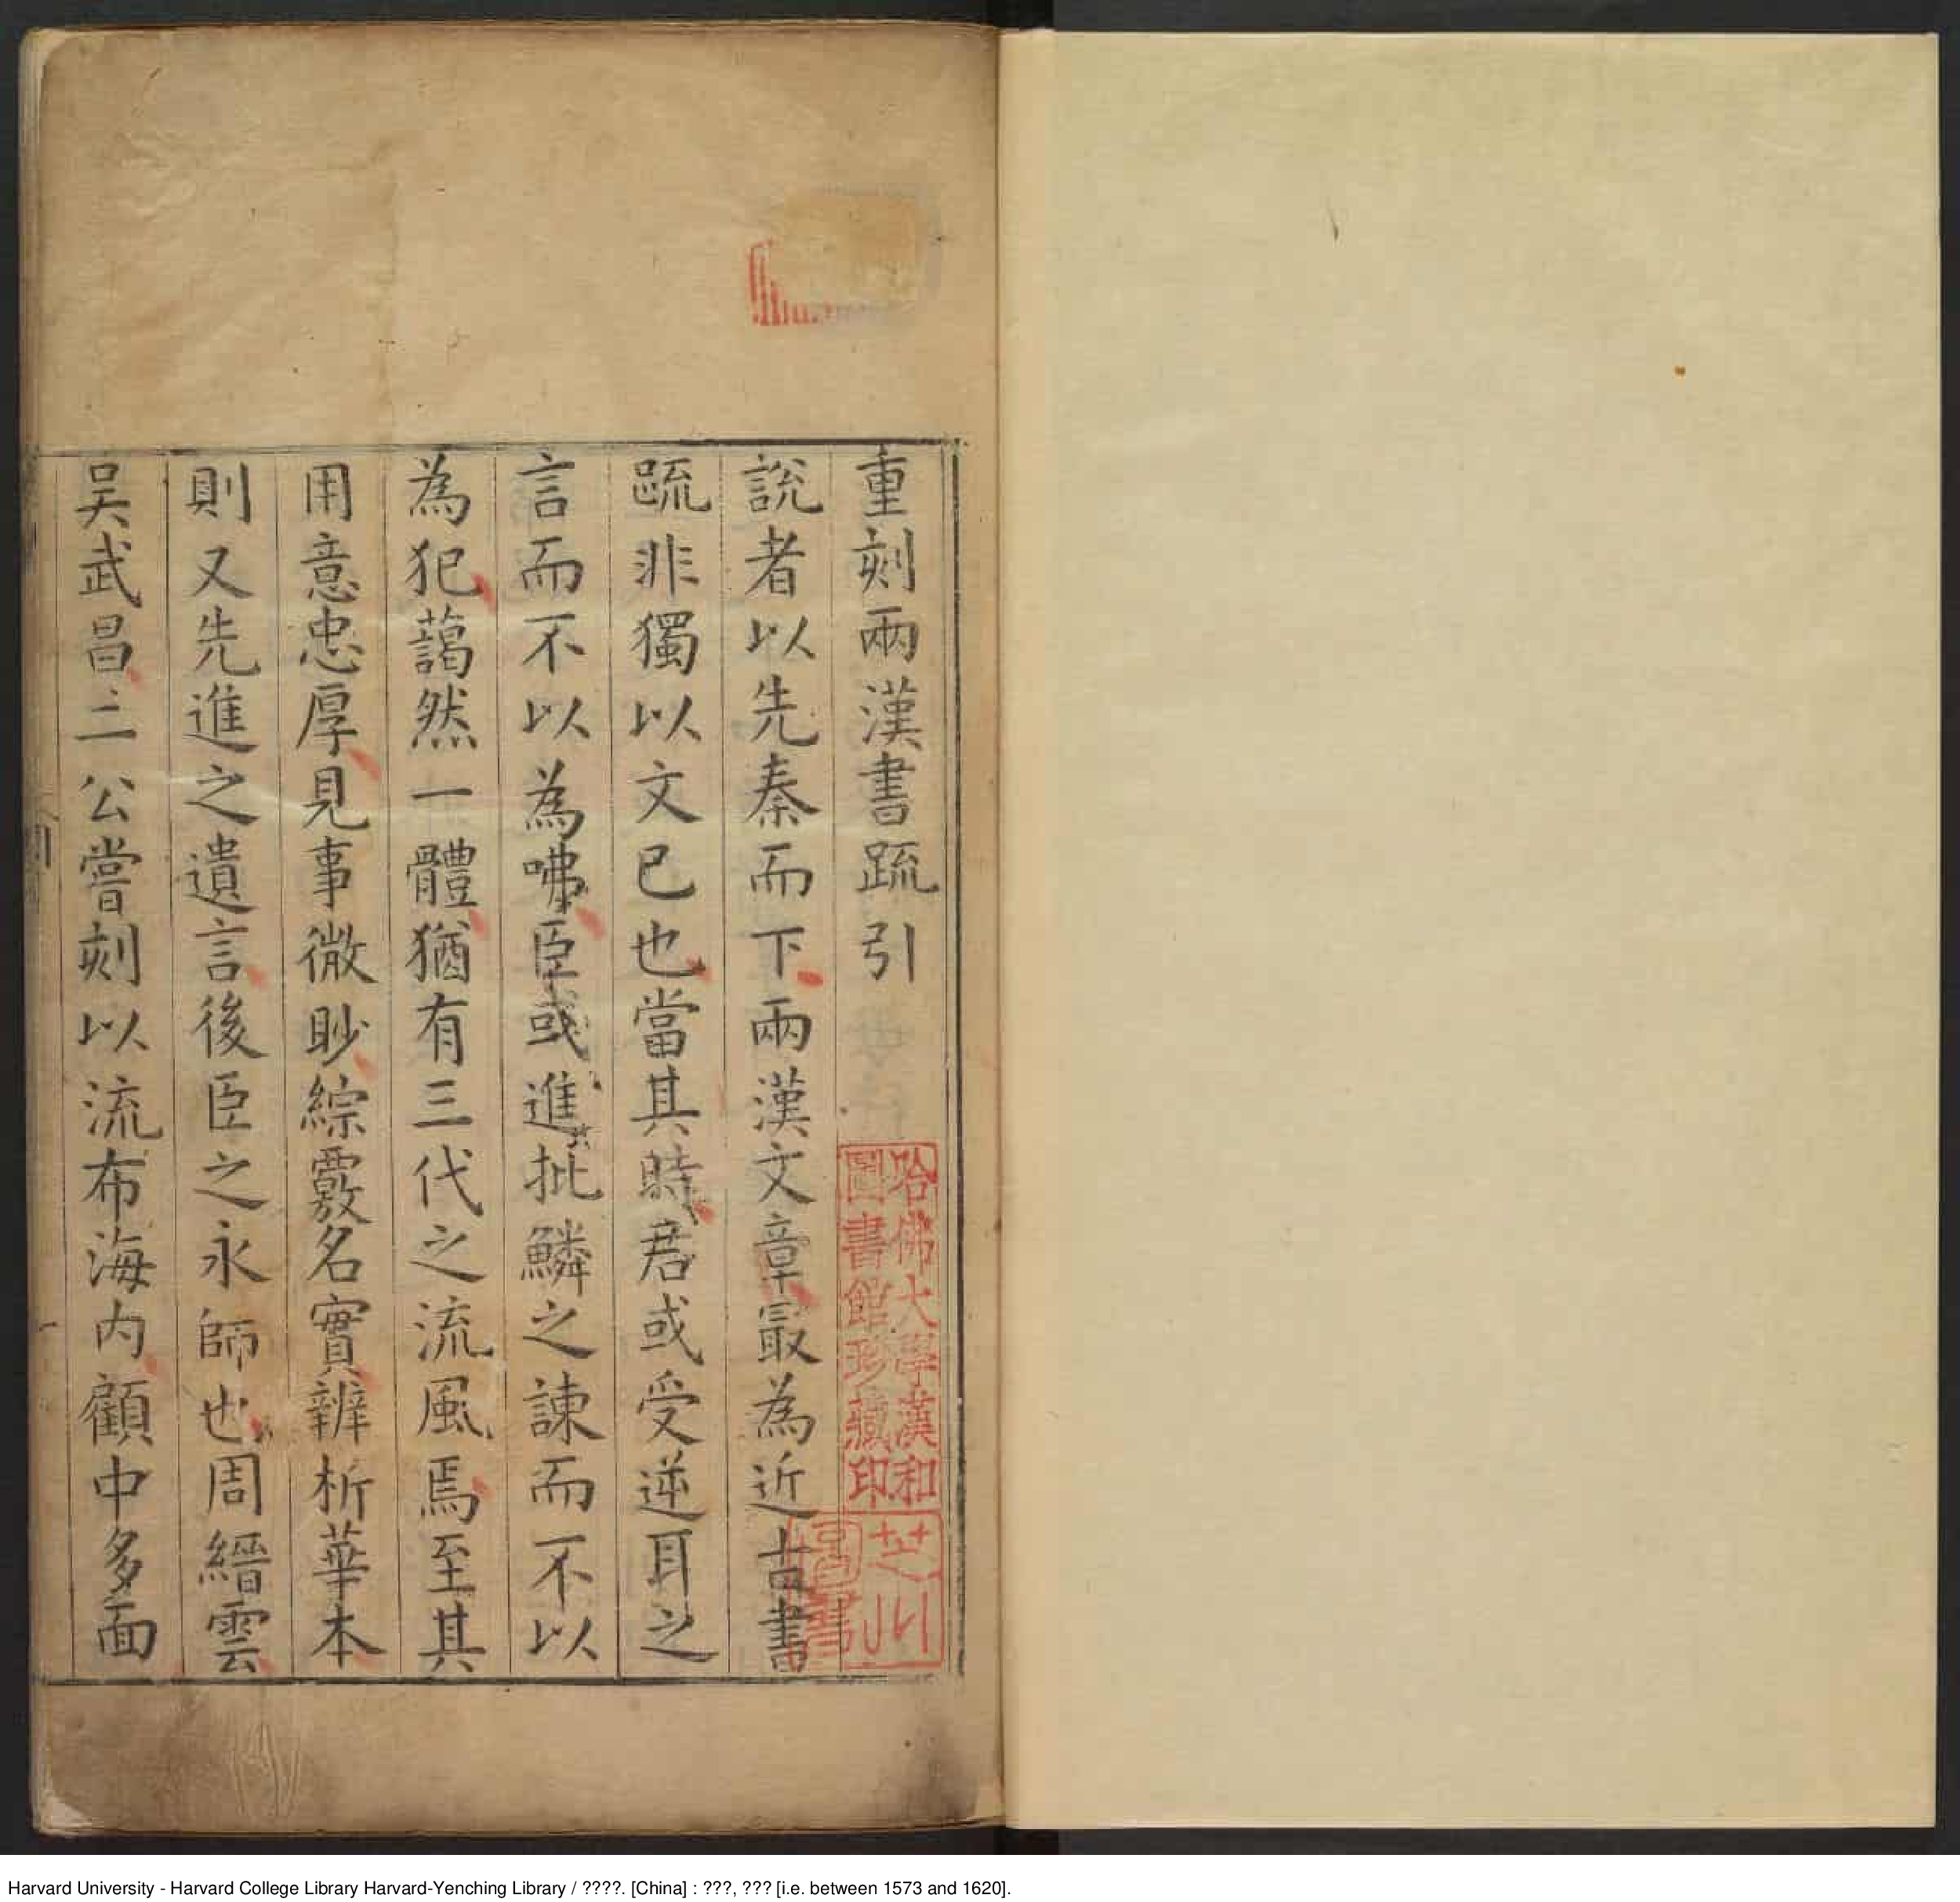 重刻兩漢書疏引
說者以先秦而下兩漢文章最為近古書
疏非獨以文已也當其時君或受逆耳之
言而不以為咈臣或進批鱗之諫而不以
為犯藹然一體猶有三代之流風焉至其
用意忠厚見事微眇綜覈名實辨析華本
則又先進之遺言後臣之永師也周縉雲
吳武昌二公嘗刻以流布海内顧中多面
哈佛大學漢和
圖書館珍藏印
芝川
Harvard University - Harvard College Library Harvard-Yenching Library / ????. [China] : ???, ??? [i.e. between 1573 and 1620].